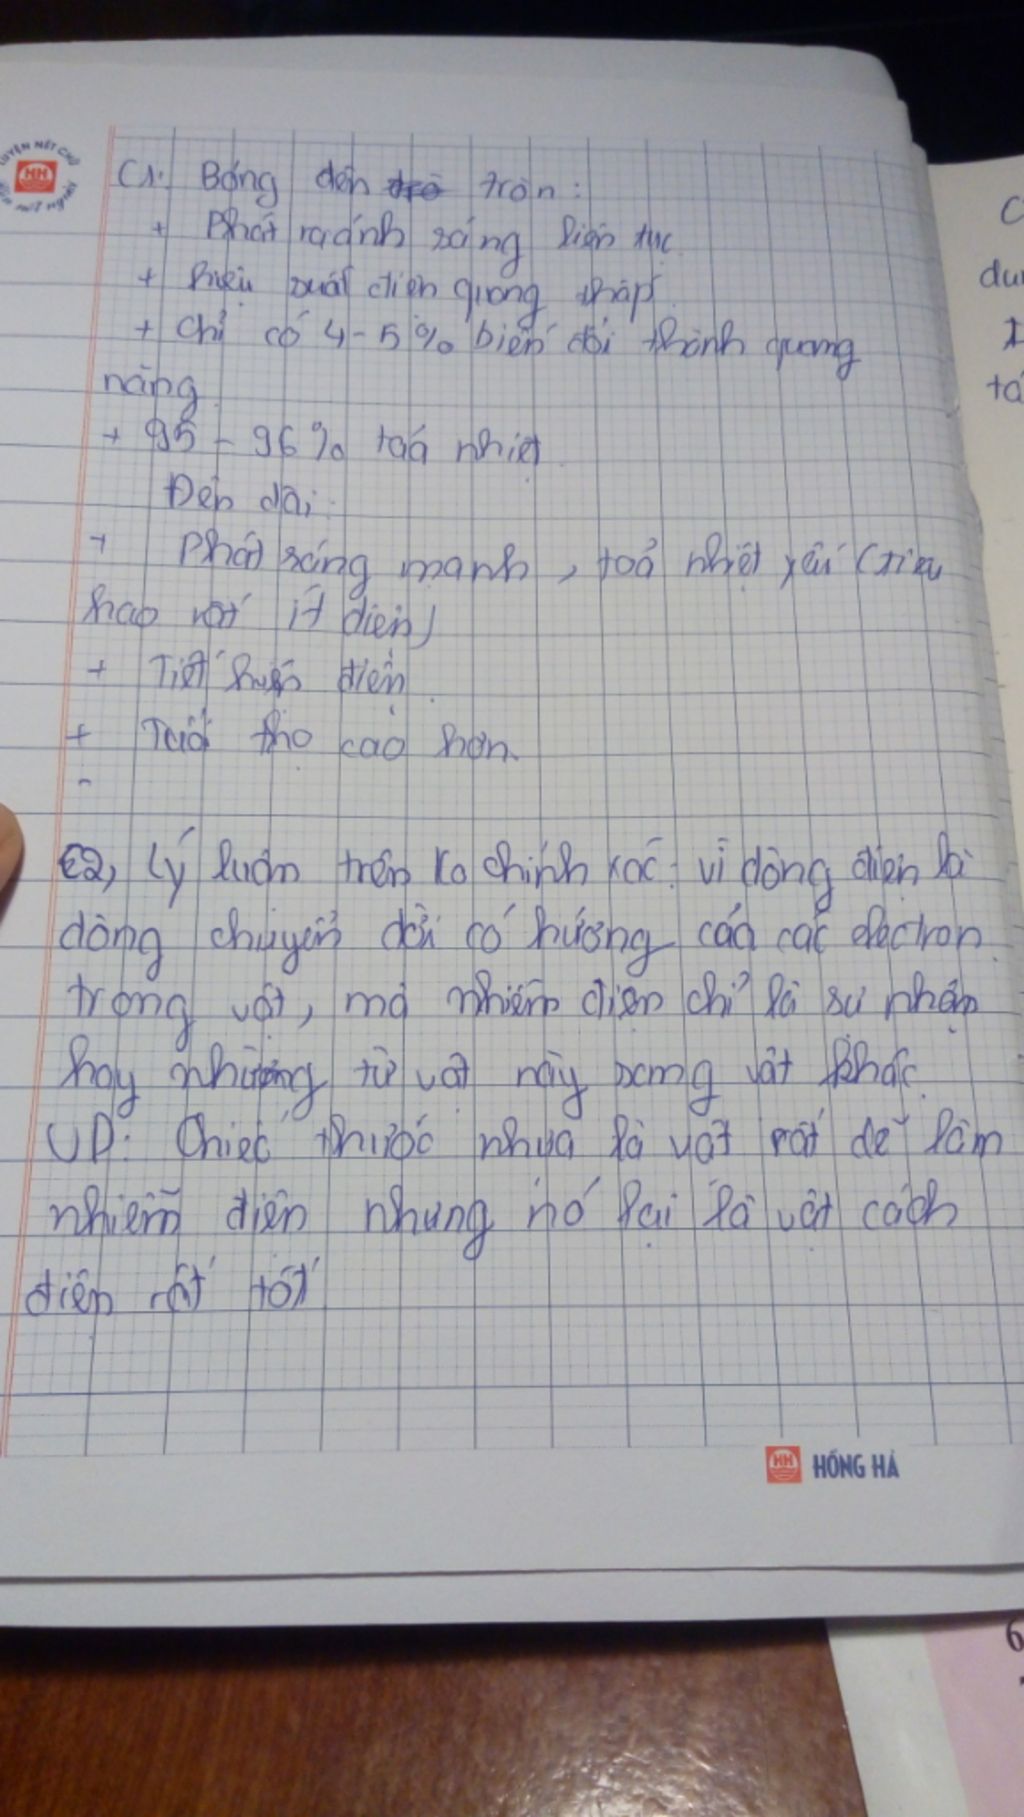 LUYỆN NÉT CHỮ
HH
C1: Bóng đèn tròn:
+ Phát ra ánh sáng liên tục
+ hiệu suất điện quang thấp
+ Chỉ có 4-5% biến đổi thành quang
năng
+ 95 - 96% toả nhiệt
Đèn dài:
+ Phát sáng mạnh, toả nhiệt yếu (tiêu
hao rất ít điện)
+ Tiết kiệm điện
+ Tuổi thọ cao hơn.
-
C2, Lý luận trên ko chính xác: vì dòng điện là
dòng chuyển dời có hướng của các electron
trong vật, mà nhiễm điện chỉ là sự nhận
hay nhường từ vật này sang vật khác
VD: Chiếc thước nhựa là vật rất dễ làm
nhiễm điện nhưng nó lại là vật cách
điện rất tốt
HH HỒNG HÀ
C
du
I
tá
6